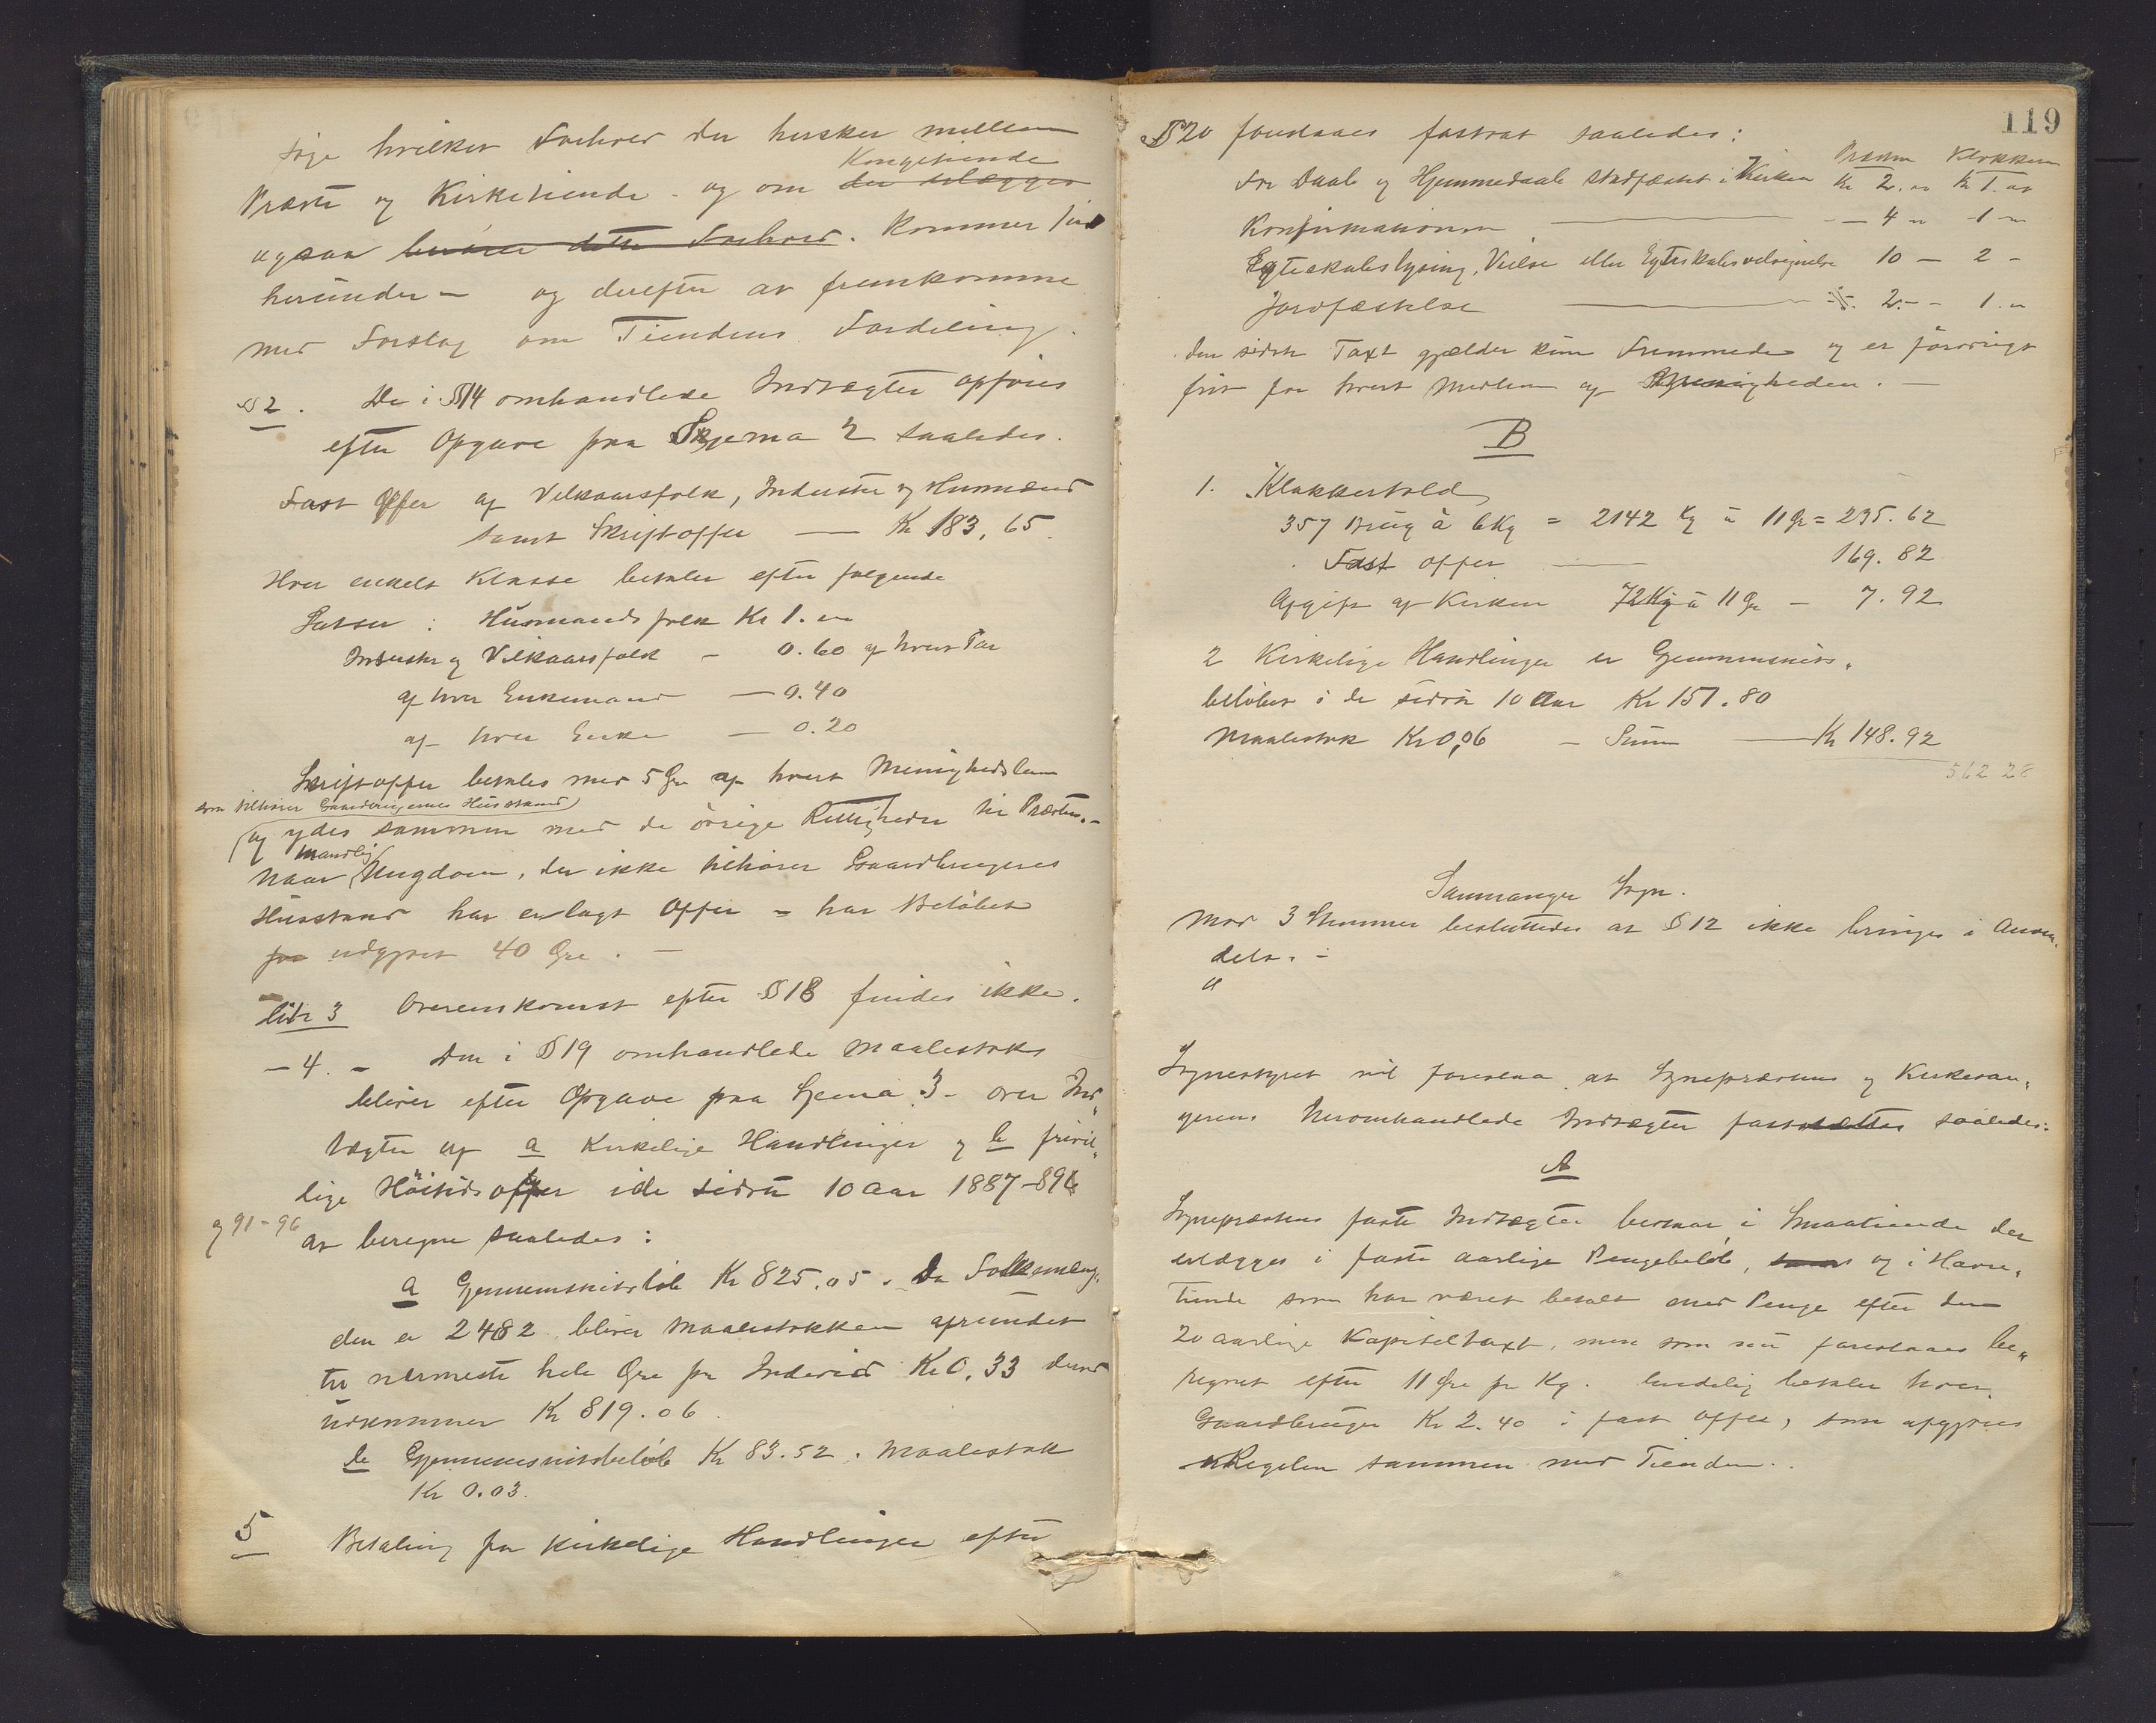 søge hvilket Forhold der hersker mellem
Kongetiende
Præste og Kirketiende - og om der erlægges
ogsaa berører dette Forhold. Kommer ind
herunder - og derefter at fremkomme
med Forslag om Tiendens Fordeling.
§ 2. De i §14 omhandlede Indtægter opføres
efter Opgave paa Skjema 2 saaledes.
Fast Offer af Vilkaarsfolk, Inderster og Husmænd
samt Skriftoffer — Kr 183,65.
Hver enkelt Klasse betaler efter følgende
Satser: Husmandsfolk Kr 1. „
Inderster og Vilkaarsfolk - 0.60 af hvert Par
af hver Enkemand — 0.40
af hver Enke — 0.20
Skriftoffer betales med 5 Øre af hvert Menighedslem
som tilhører Gaardbrugernes Husstand
og ydes sammen med de øvrige Rettigheder til Præsten.-
mandlig
Naar Ungdom, der ikke tilhører Gaardbrugeres
Husstand har erlagt Offer = har Beløbet
for udgjort 40 Øre. —
Litr 3 Overenskomst efter §18 findes ikke.
— 4. - Den i §19 omhandlede Maalestok
bliver efter Opgave paa Sjema 3 - over Ind„
tægter af a Kirkelige Handlinger og b frivil„
lige Høitidsoffer i de sidste 10 Aar 1887-89
og 91-96
at beregne saaledes:
a Gjennemsnitsbeløb Kr 825.05. Da Folkemæng„
den er 2482 bliver Maalestokken afrundet
til nærmeste hele Øre pr Individ Kr 0.33 derved
udkommer Kr 819.06.
b Gjennemsnitsbeløb Kr 83.52. Maalestok
Kr 0.03.
5 Betaling for kirkelige Handlinger efter
119
§20 foreslaaes fastsat saaledes:
Præsten Klokkeren
For Daab og Hjemmedaab stadfæstet i Kirken Kr 2. „ Kr 1. „
Konfirmationen — - 4 „ - 1 „
Egteskabslysning, Vielse eller Egteskabsvelsignelse 10 — 2 -
Jordfæstelse — 2. - - 1. „
den sidste Taxt gjælder kun Fremmede og er forøvrigt
frit for hvert Medlem af Menigheden. —
B
1. Klokkertold
357 Brug à 6 Kg = 2142 Kg à 11 Øre = 235.62
Fast offer — 169.82
Afgift af Kirken 72 Kg à 11 Øre — 7.92
2 Kirkelige Handlinger er Gjennemsnits„
beløbet i de sidste 10 Aar Kr 151.80
Maalestok Kr 0,06 — Sum — Kr 148.92
562 28
Samnanger Sogn.
Mod 3 Stemmer besluttedes at §12 ikke bringes i Anven„
delse. -
Sognestyret vil foreslaa at Sognepræstens og Kirkesan„
gerens heromhandlede Indtægter fastsættes saaledes:
A
Sognepræstens faste Indtægter bestaar i Smaatiende der
erlægges i faste aarlige Pengebeløb, samt og i Havre„
tiende som har været betalt med Penge efter den
20 aarlige Kapiteltaxt, men som nu foreslaaes be„
regnet efter 11 Øre pr Kg. Endelig betaler hver
Gaardbruger Kr 2.40 i fast Offer, som afgjøres
i Regelen sammen med Tienden.